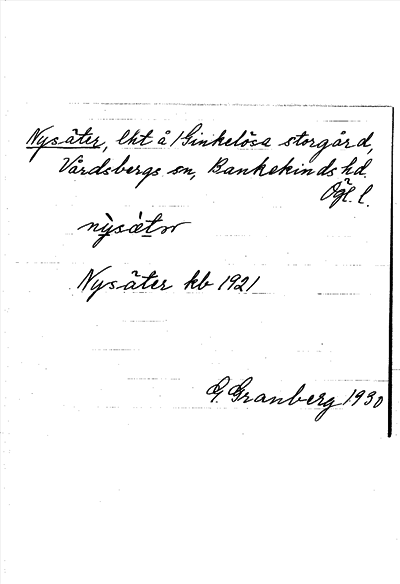 Nysäter, lht å Ginkelösa storgård,
Vårdsbergs sn, Bankekinds hd.
Ögl. l.
nỳsæ̀tər
Nysäter kb 1921
G. Granberg 1930